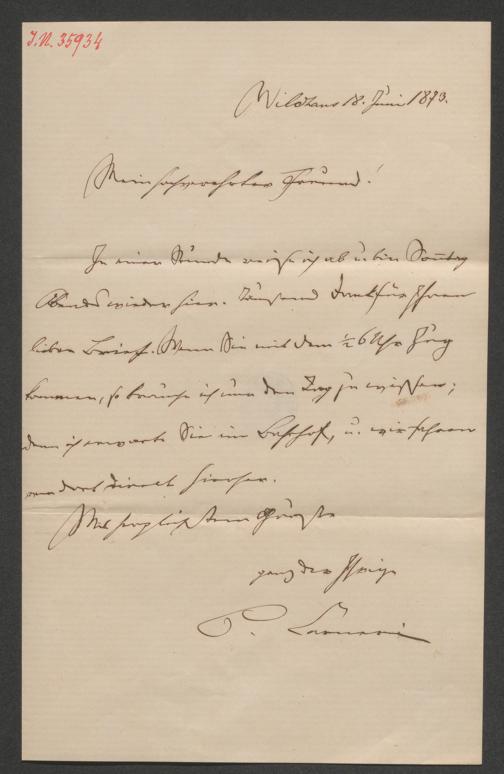 I.N. 35934
Wildhaus 18. Juni 1873.
Mein hochverehrter Freund!
In einer Stunde reise ich ab u. bin Sonntag
Abends wieder hier. Tausend Dank für Ihren
lieben Brief. Wenn Sie mit dem ½ 6 Uhr Zug
kommen, so brauche ich nur den Tag zu wissen;
denn ich erwarte Sie im Bahnhof, u. wir fahren
von dort direct hierher.
Mit herzlichstem Gruße
ganz der Ihrige
Carneri